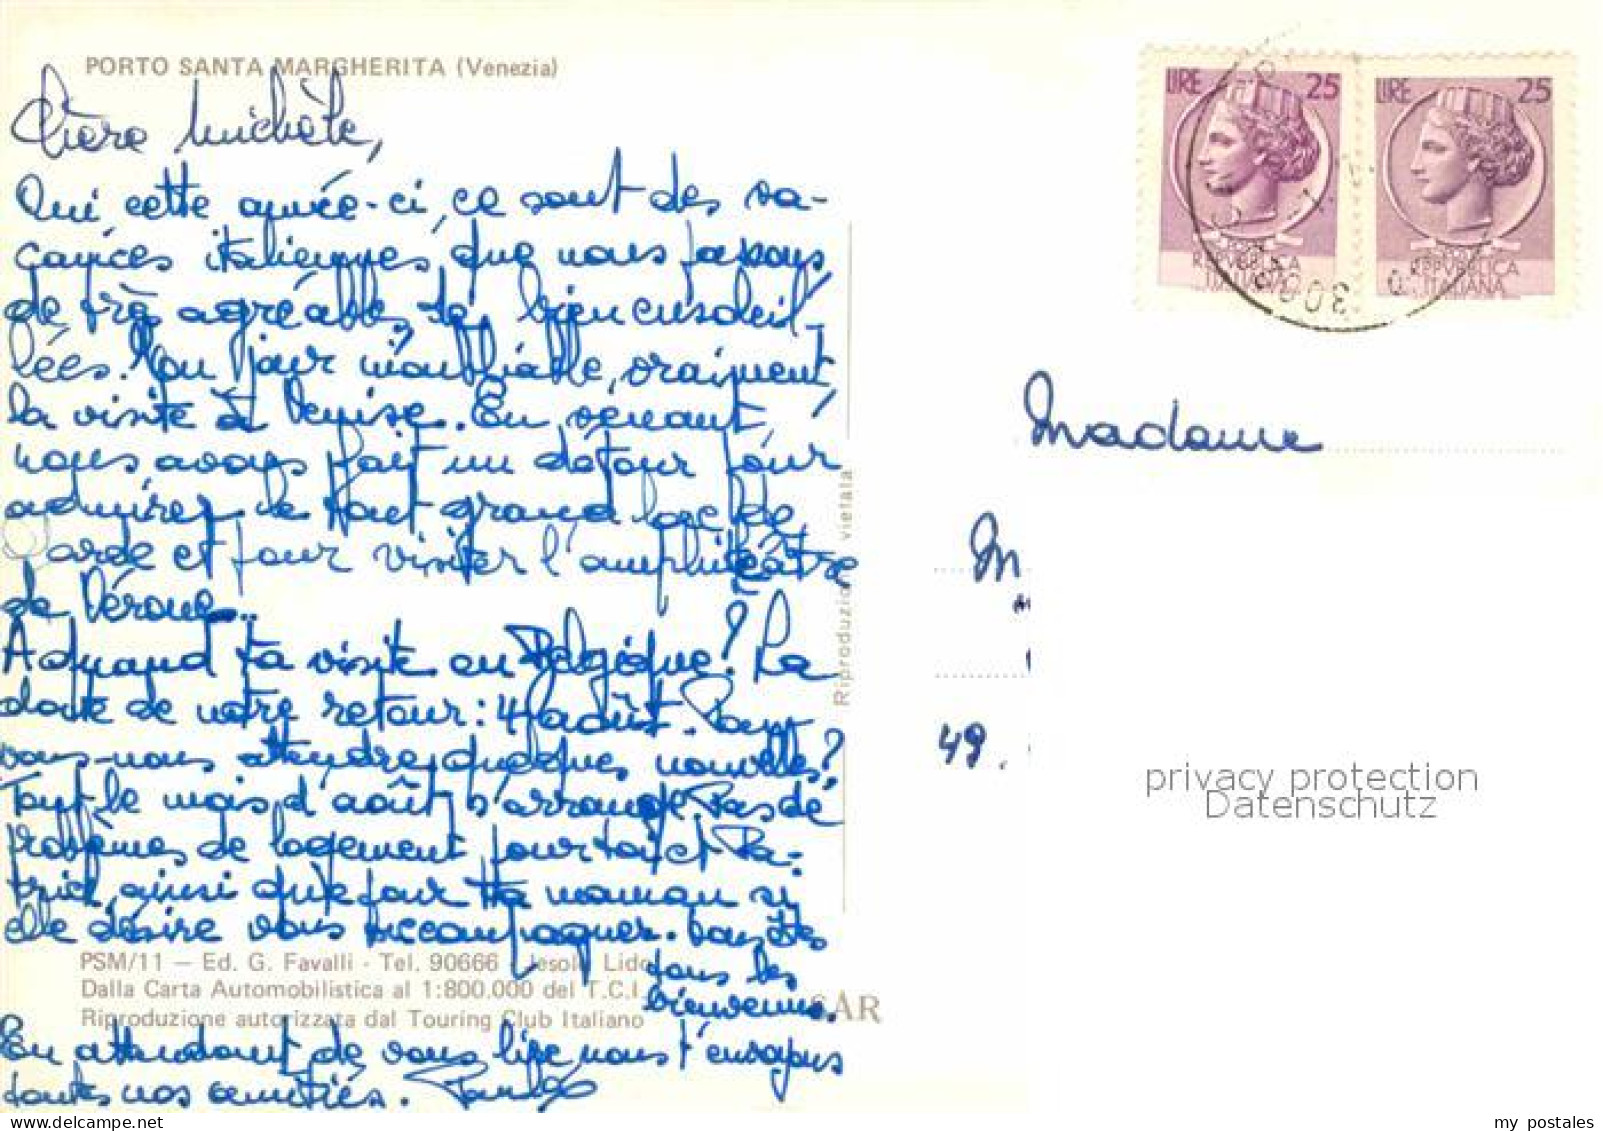 PORTO SANTA MARGHERITA (Venezia)
Chère Michèle,
Oui cette année-ci, ce sont des va-
cances italiennes, que nous passons
de très agréables, de bien ensoleil-
lées. Un jour inoubliable, vraiment,
la visite à Venise. En venant,
nous avons fait un détour pour
admirer le tout grand lac de
Garde et pour visiter l'amphithéâtre
de Vérone..
A quand ta visite en Belgique? La
date de notre retour: 4 août. Pouv
vous-nous attendre quelques nouvelles?
Tout le mois d'août s'arrange. Pas de
problèmes de logement pour toi et Pa-
trick, ainsi que pour ta maman si
elle désire vous accompagner. Vous êtes
tous les
bienvenus.
En attendant de vous lire nous t'envoyons
toutes nos amitiés.
PSM/11 — Ed. G. Favalli - Tel. 90666 - Jesolo Lido
Dalla Carta Automobilistica al 1:800.000 del T.C.I.
Riproduzione autorizzata dal Touring Club Italiano
SAR
Riproduzione vietata
LIRE 25
REPVBBLICA
ITALIANA
LIRE 25
REPVBBLICA
ITALIANA
Madame
M
49.
privacy protection
Datenschutz
my postales